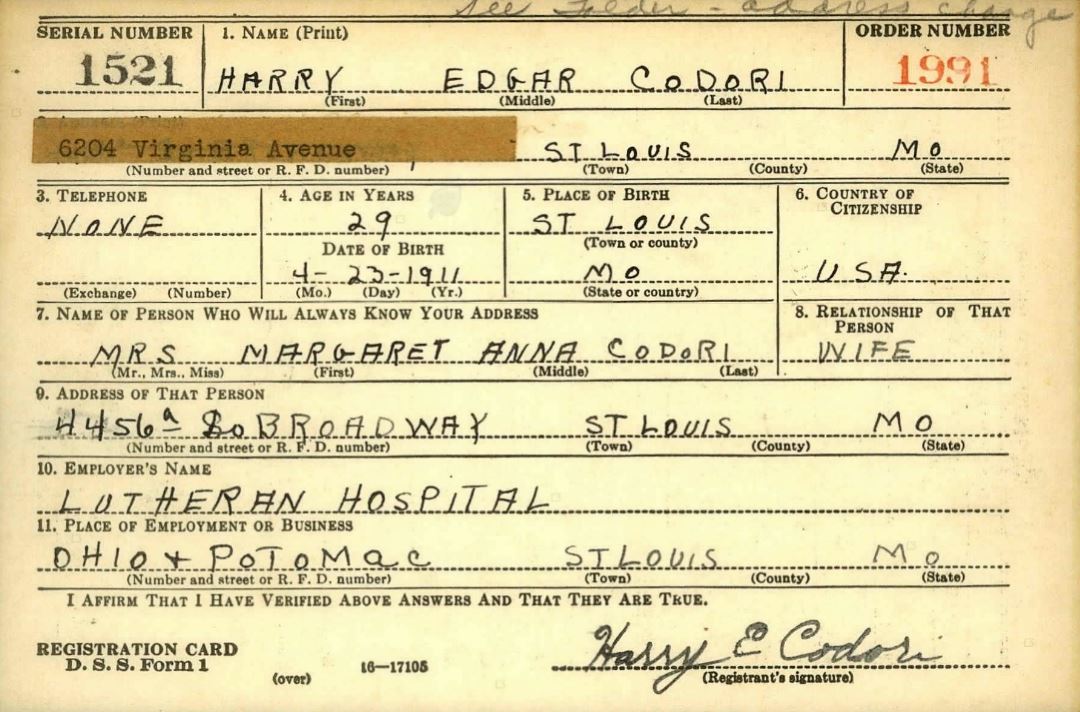 See Folder - address change
SERIAL NUMBER 1. NAME (Print) ORDER NUMBER
1521 HARRY EDGAR CODORI 1991
(First) (Middle) (Last)
6204 Virginia Avenue ST LOUIS MO
(Number and street or R. F. D. number) (Town) (County) (State)
3. TELEPHONE 4. AGE IN YEARS 5. PLACE OF BIRTH 6. COUNTRY OF CITIZENSHIP
NONE 29 ST LOUIS
(Town or county)
DATE OF BIRTH
4-23-1911 MO USA.
(Exchange) (Number) (Mo.) (Day) (Yr.) (State or country)
7. NAME OF PERSON WHO WILL ALWAYS KNOW YOUR ADDRESS 8. RELATIONSHIP OF THAT PERSON
MRS MARGARET ANNA CODORI WIFE
(Mr., Mrs., Miss) (First) (Middle) (Last)
9. ADDRESS OF THAT PERSON
4456a So BROADWAY ST LOUIS MO
(Number and street or R. F. D. number) (Town) (County) (State)
10. EMPLOYER'S NAME
LUTHERAN HOSPITAL
11. PLACE OF EMPLOYMENT OR BUSINESS
OHIO + POTOMAC ST LOUIS MO
(Number and street or R. F. D. number) (Town) (County) (State)
I AFFIRM THAT I HAVE VERIFIED ABOVE ANSWERS AND THAT THEY ARE TRUE.
REGISTRATION CARD
D. S. S. Form 1 (over) 16—17105 Harry E Codori
(Registrant's signature)